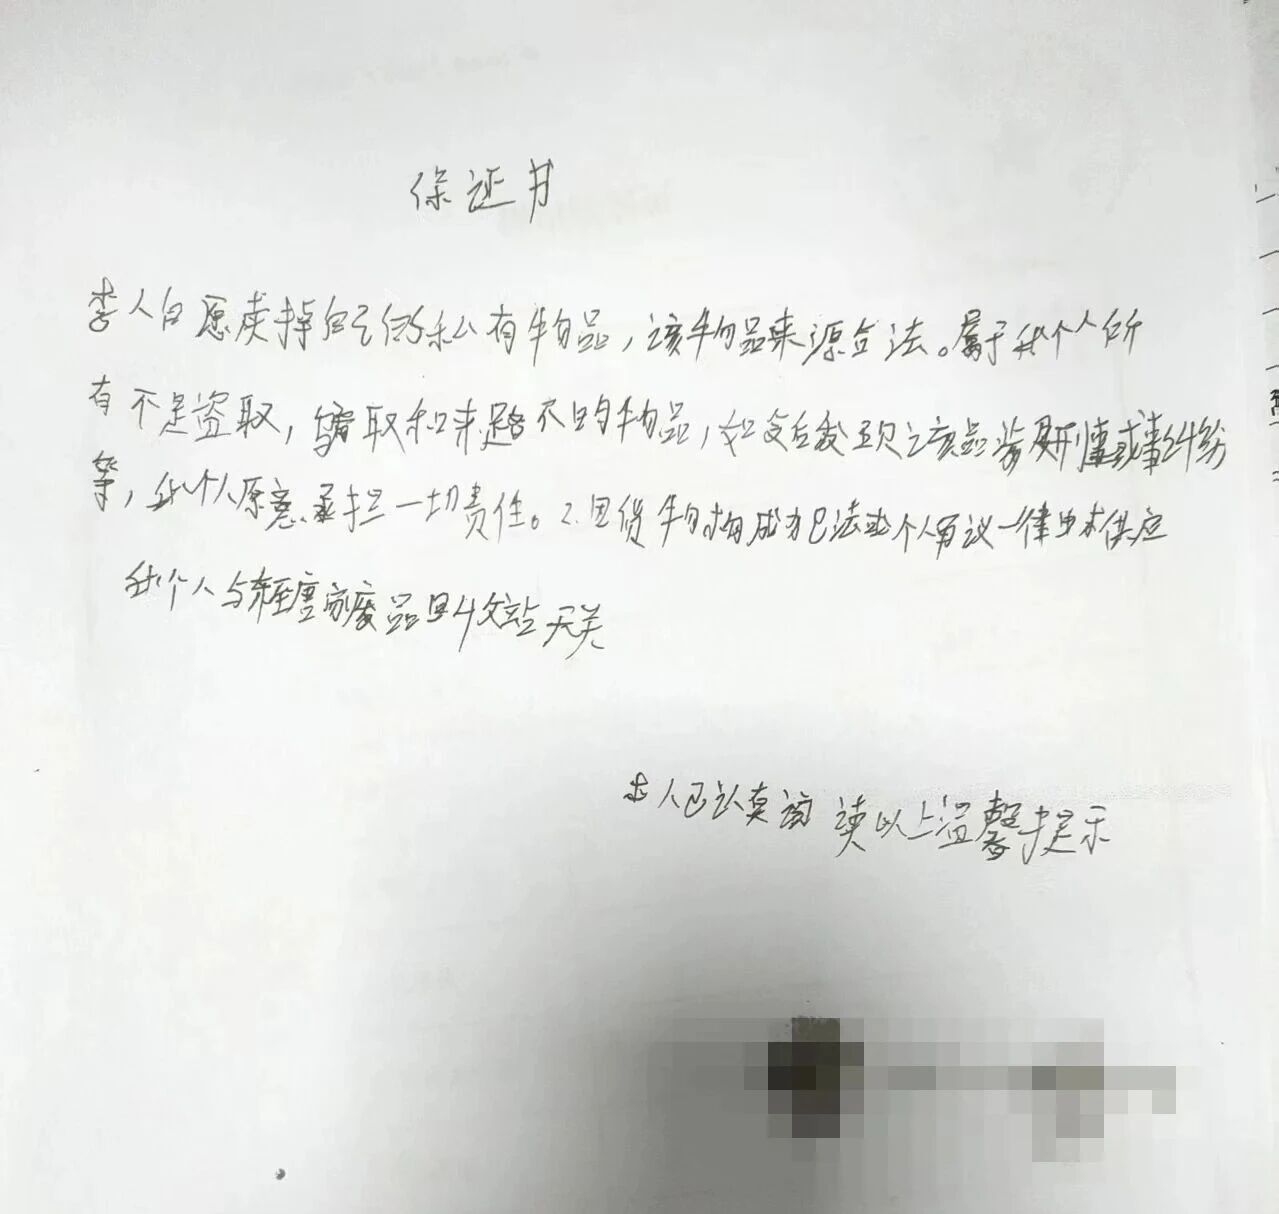 保证书
本人自愿卖掉自己的私有物品，该物品来源合法。属于我个人所
有不是盗取，骗取和来路不明的物品，如交后发现该品涉及刑事或事纠纷
等，我个人愿意承担一切责任。2.因货物构成犯法或个人争议一律由本供应
我个人与唐家废品回收站无关
本人已认真阅读以上温馨提示